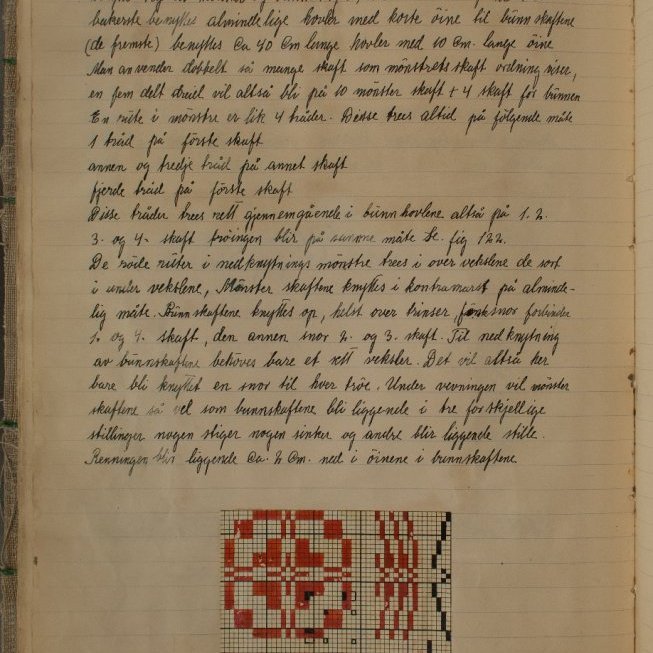 bakerste benyttes almindelige hovler med korte öine til bunnskaftene
(de fremste) benyttes Ca 40 Cm lange hovler med 10 Cm. lange öine
Man anvender dobbelt så mange skaft som mönstrets skaft ordning viser,
en fem delt dreiel vil altså bli på 10 mönster skaft + 4 skaft for bunnen
En rute i mönstre er lik 4 tråder. Disse trees altid på fölgende måte
1 tråd på förste skaft
annen og tredje tråd på annet skaft
fjerde tråd på förste skaft
Disse tråder trees rett gjennemgående i bunnhovlene altså på 1. 2.
3. og 4. skaft tröingen blir på samme måte Se. fig 122.
De röde ruter i nedknytnings mönstre trees i over vekslene de sort
i under vekslene, Mönster skaftene knyttes i kontramarst på alminde-
lig måte. Bunnskaftene knyttes op, helst over trinser, snor forbinder
1. og 4. skaft, den annen snor 2. og 3. skaft. Til nedknytning
av bunnskaftene behöves bare et sett veksler. Det vil altså her
bare bli knyttet en snor til hver tröe. Under vevningen vil mönster
skaftene så vel som bunnskaftene bli liggende i tre forskjellige
stillinger nogen stiger nogen sinker og andre blir liggende stille.
Renningen blir liggende Ca. 2 Cm. ned i öinene i bunnskaftene